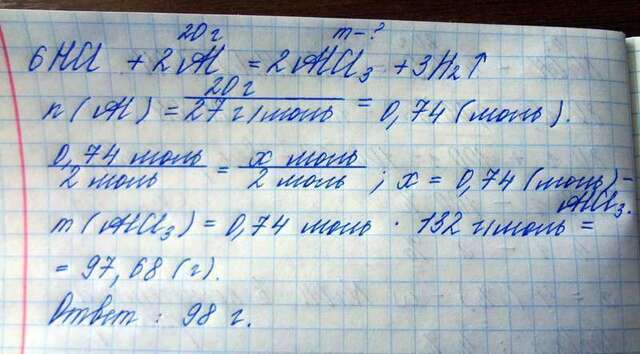 20 г m-?
6HCl + 2Al = 2AlCl₃ + 3H₂↑
n(Al) = 20 г / 27 г/моль = 0,74 (моль).
0,74 моль / 2 моль = x моль / 2 моль ; x = 0,74 (моль) - AlCl₃.
m(AlCl₃) = 0,74 моль · 132 г/моль =
= 97,68 (г).
Ответ : 98 г.